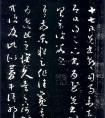 十七日先書郗司馬未去
即日得足下書為慰先
書以具示復數字
吾前東粗足作佳觀
吾為逸民之懷久矣足下何以
方復及此似夢中語耶